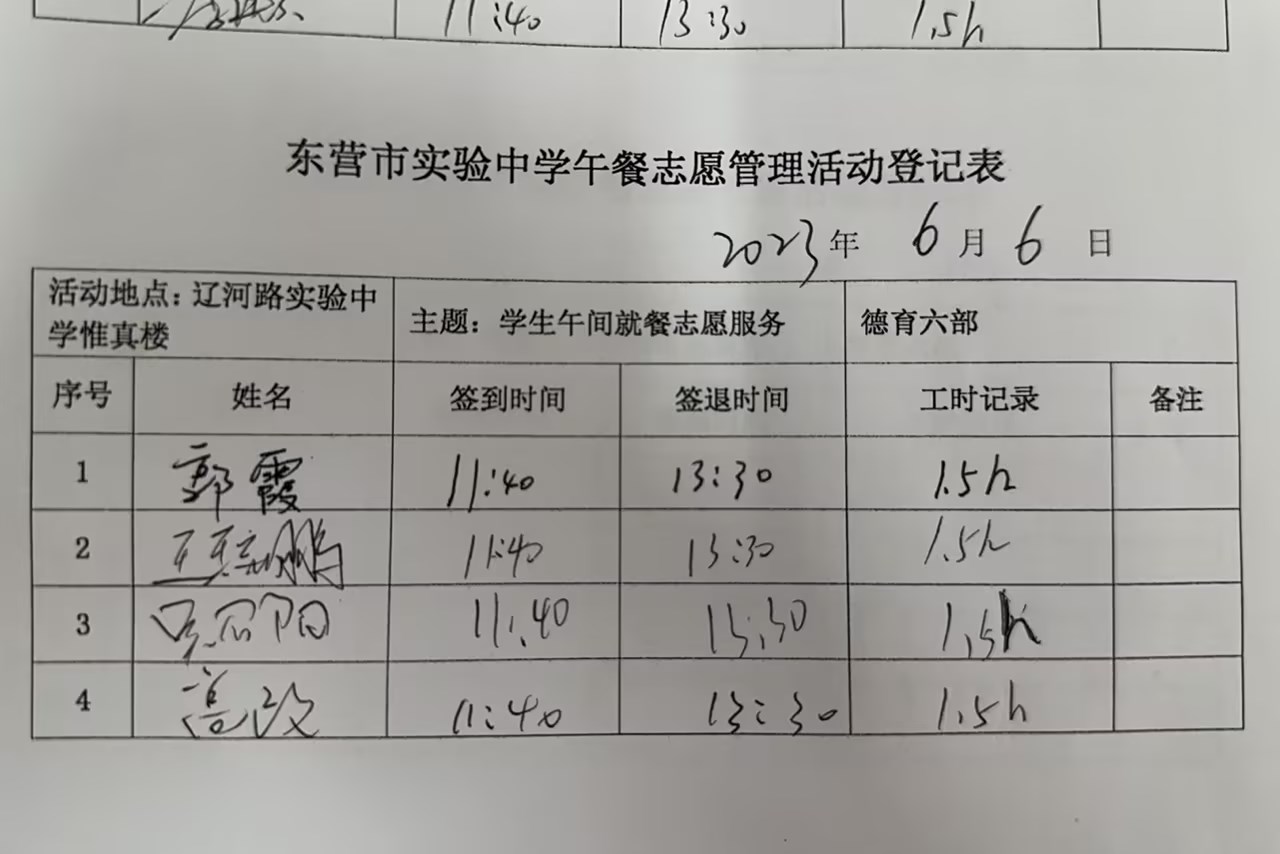 11:40 13:30 1.5h
东营市实验中学午餐志愿管理活动登记表
2023年 6月6日
活动地点：辽河路实验中 主题：学生午间就餐志愿服务 德育六部
学惟真楼
序号 姓名 签到时间 签退时间 工时记录 备注
1 郭霞 11:40 13:30 1.5h
2 11:40 13:30 1.5h
3 11:40 13:30 1.5h
4 11:40 13:30 1.5h